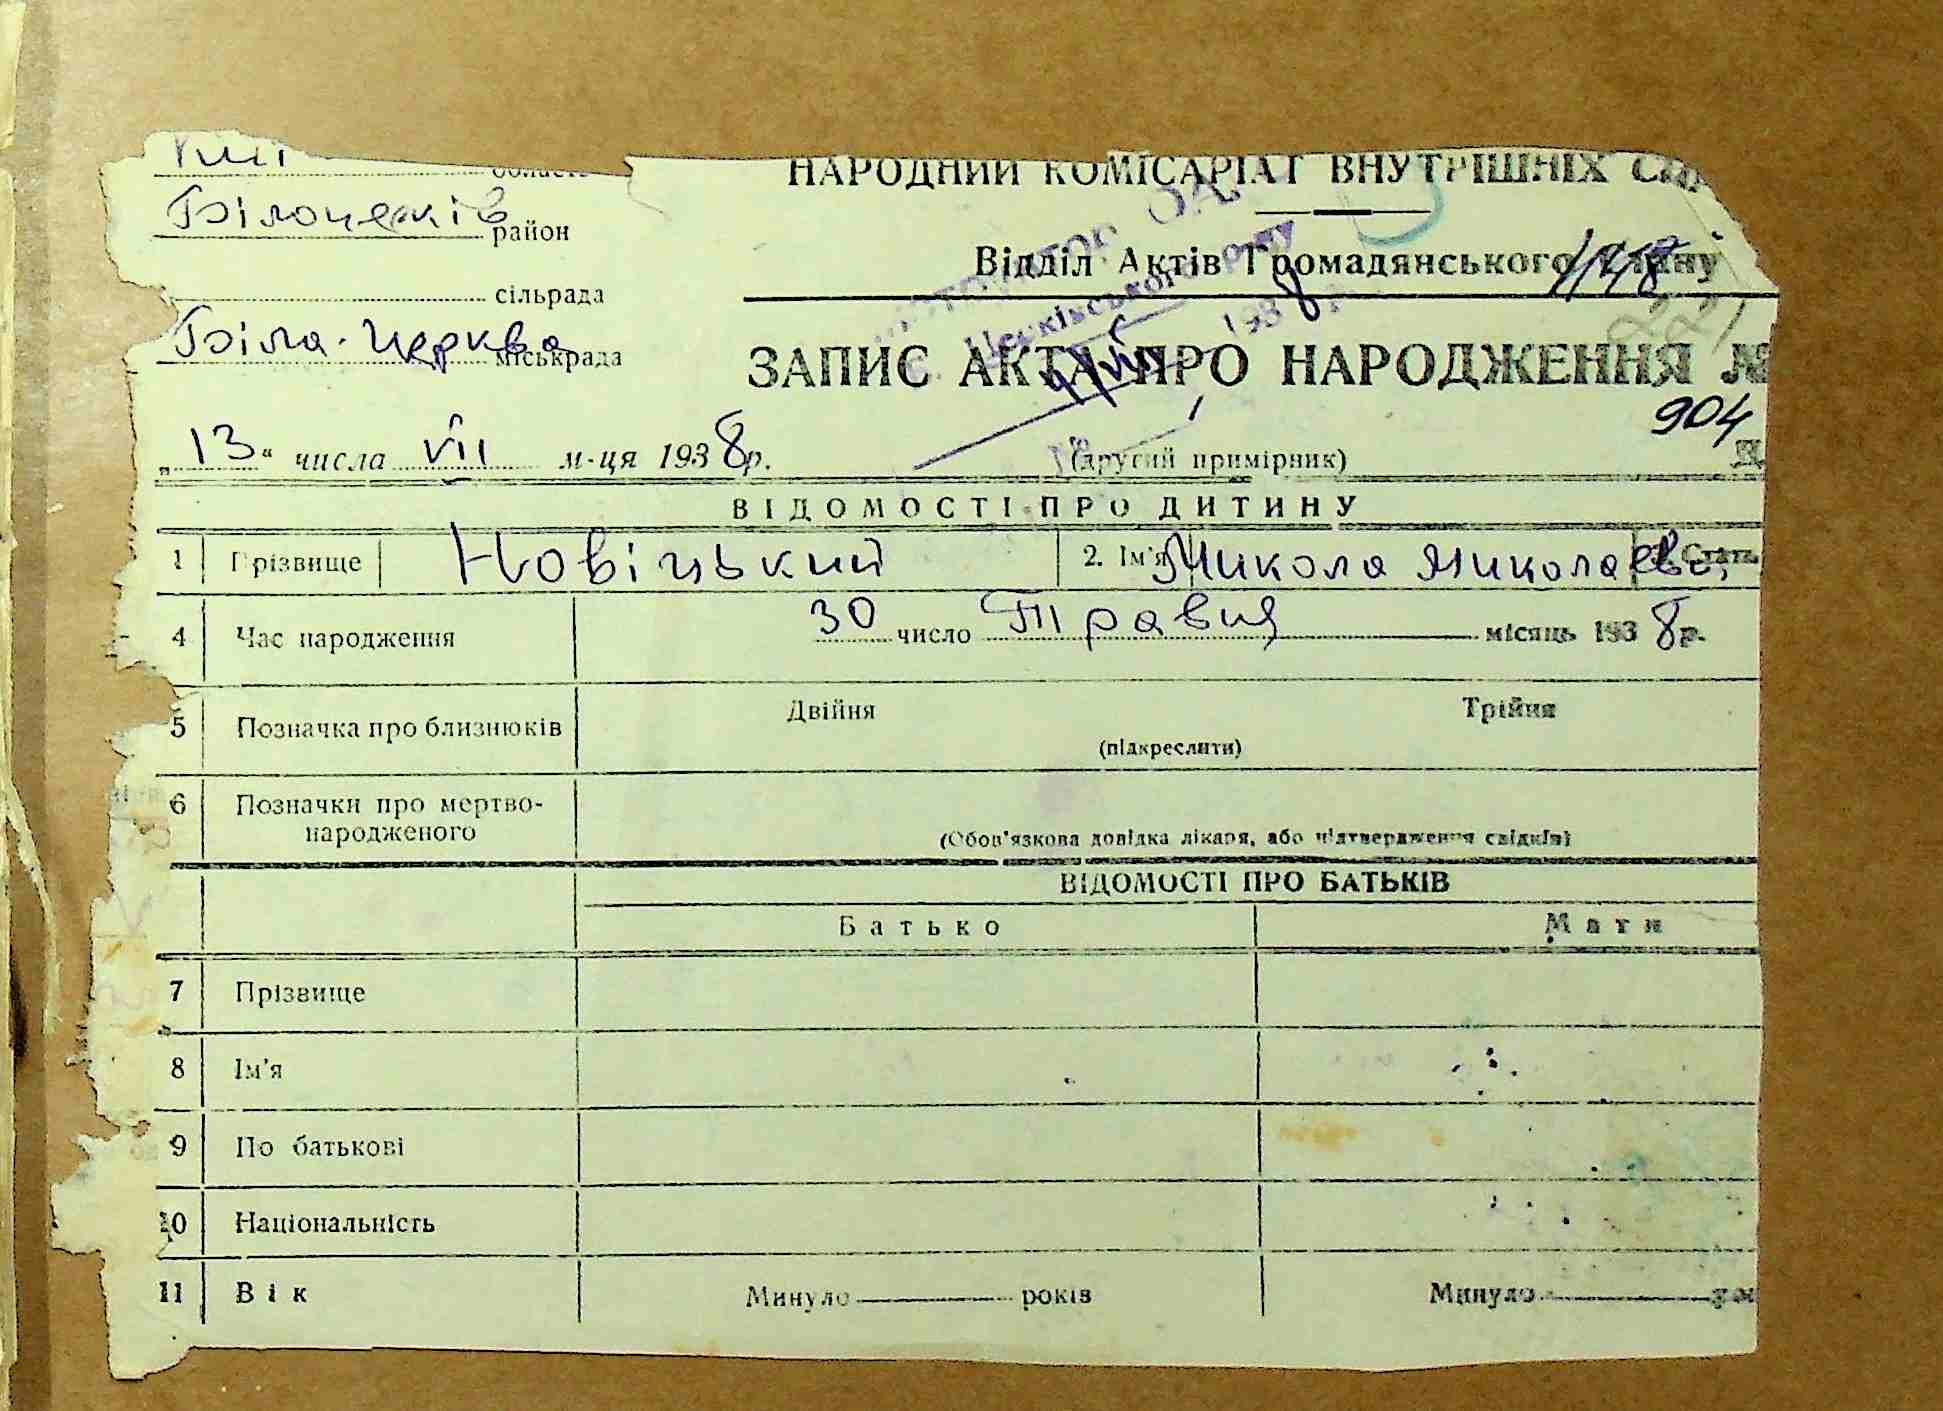 область
Білоцерків район
сільрада
Біла-Церква міськрада
НАРОДНИЙ КОМІСАРІАТ ВНУТРІШНІХ
Відділ Актів Громадянського Стану
1148
221
ЗАПИС АКТА ПРО НАРОДЖЕННЯ №
904
„13“ числа VII м-ця 1938 р.
(другий примірник)
Церківського
193
ВІДОМОСТІ ПРО ДИТИНУ
1 Прізвище Новіцький 2. Ім'я Микола Миколаєв. Стать
4 Час народження 30 число Травня місяць 1938 р.
5 Позначка про близнюків Двійня Трійня
(підкреслити)
6 Позначки про мертво-
народженого
(Обов'язкова довідка лікаря, або підтвердження свідків)
ВІДОМОСТІ ПРО БАТЬКІВ
Батько Мати
7 Прізвище
8 Ім'я
9 По батькові
10 Національність
11 Вік Минуло років Минуло